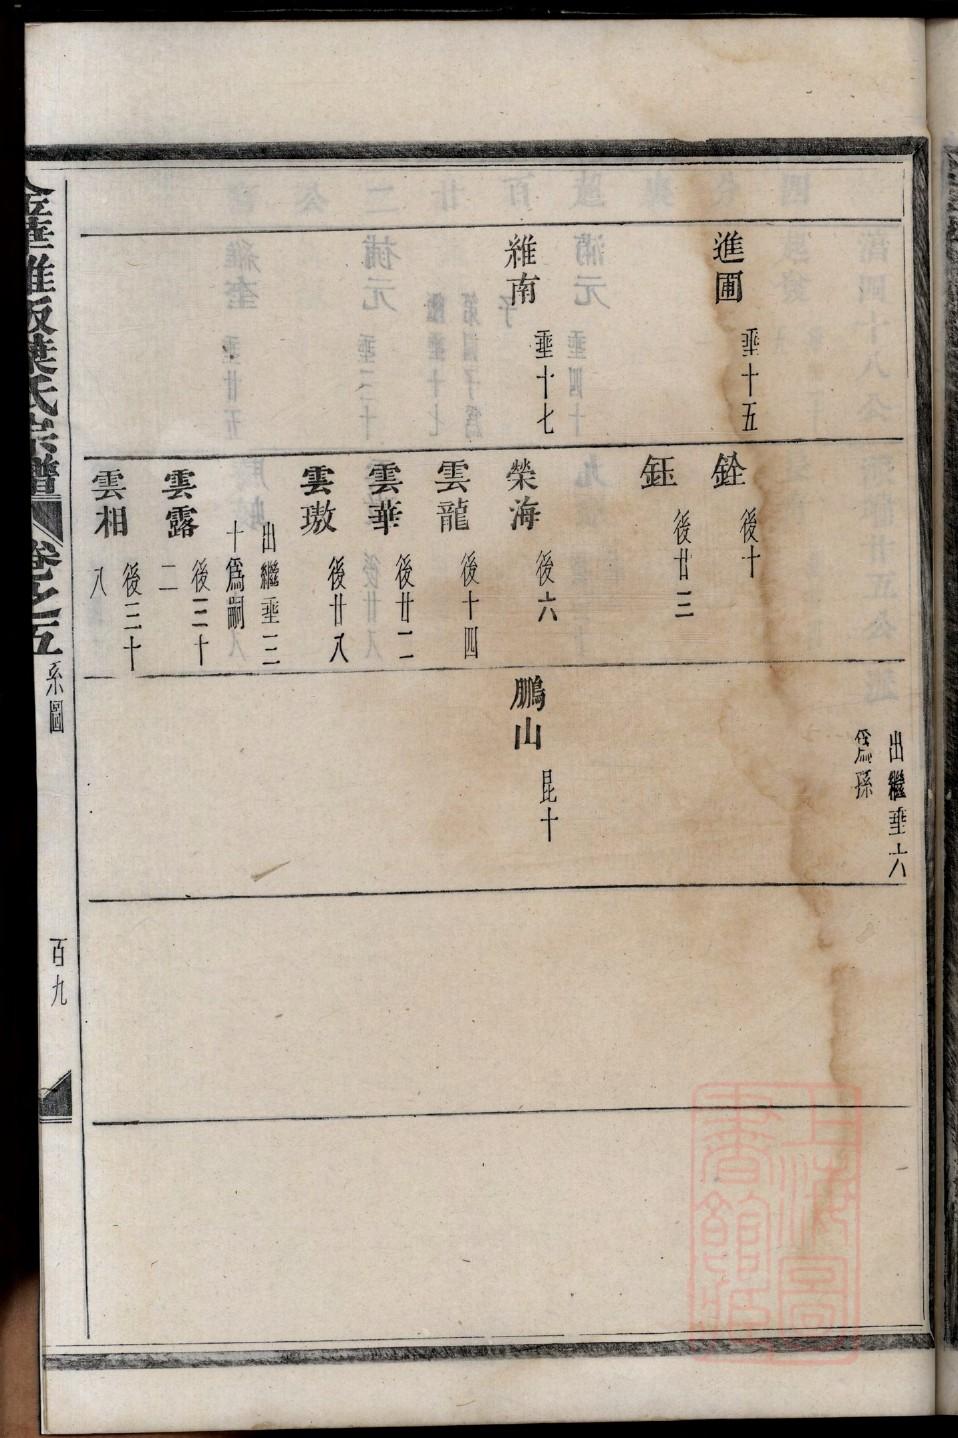 進圃
垂十五
維南
垂十七
銓
後十
鈺
後廿三
榮海
後六
雲龍
後十四
雲華
後廿二
雲璈
後廿八
出繼垂三
十爲嗣
雲露
後三十
二
雲相
後三十
八
出繼垂六
爲孫
鵬山
昆十
葉氏宗譜
卷之五
系圖
百九
上海圖
書館藏